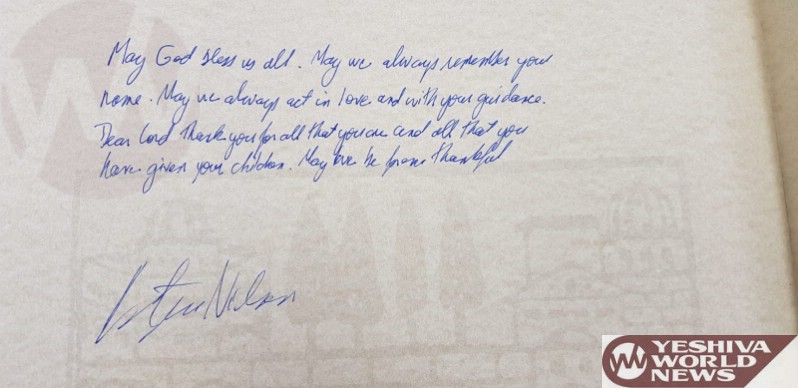 May God bless us all. May we always remember your
name. May we always act in love and with your guidance.
Dear Lord thank you for all that you are and all that you
have given your children. May we be forever thankful
Nielsen
YESHIVA
WORLD
NEWS